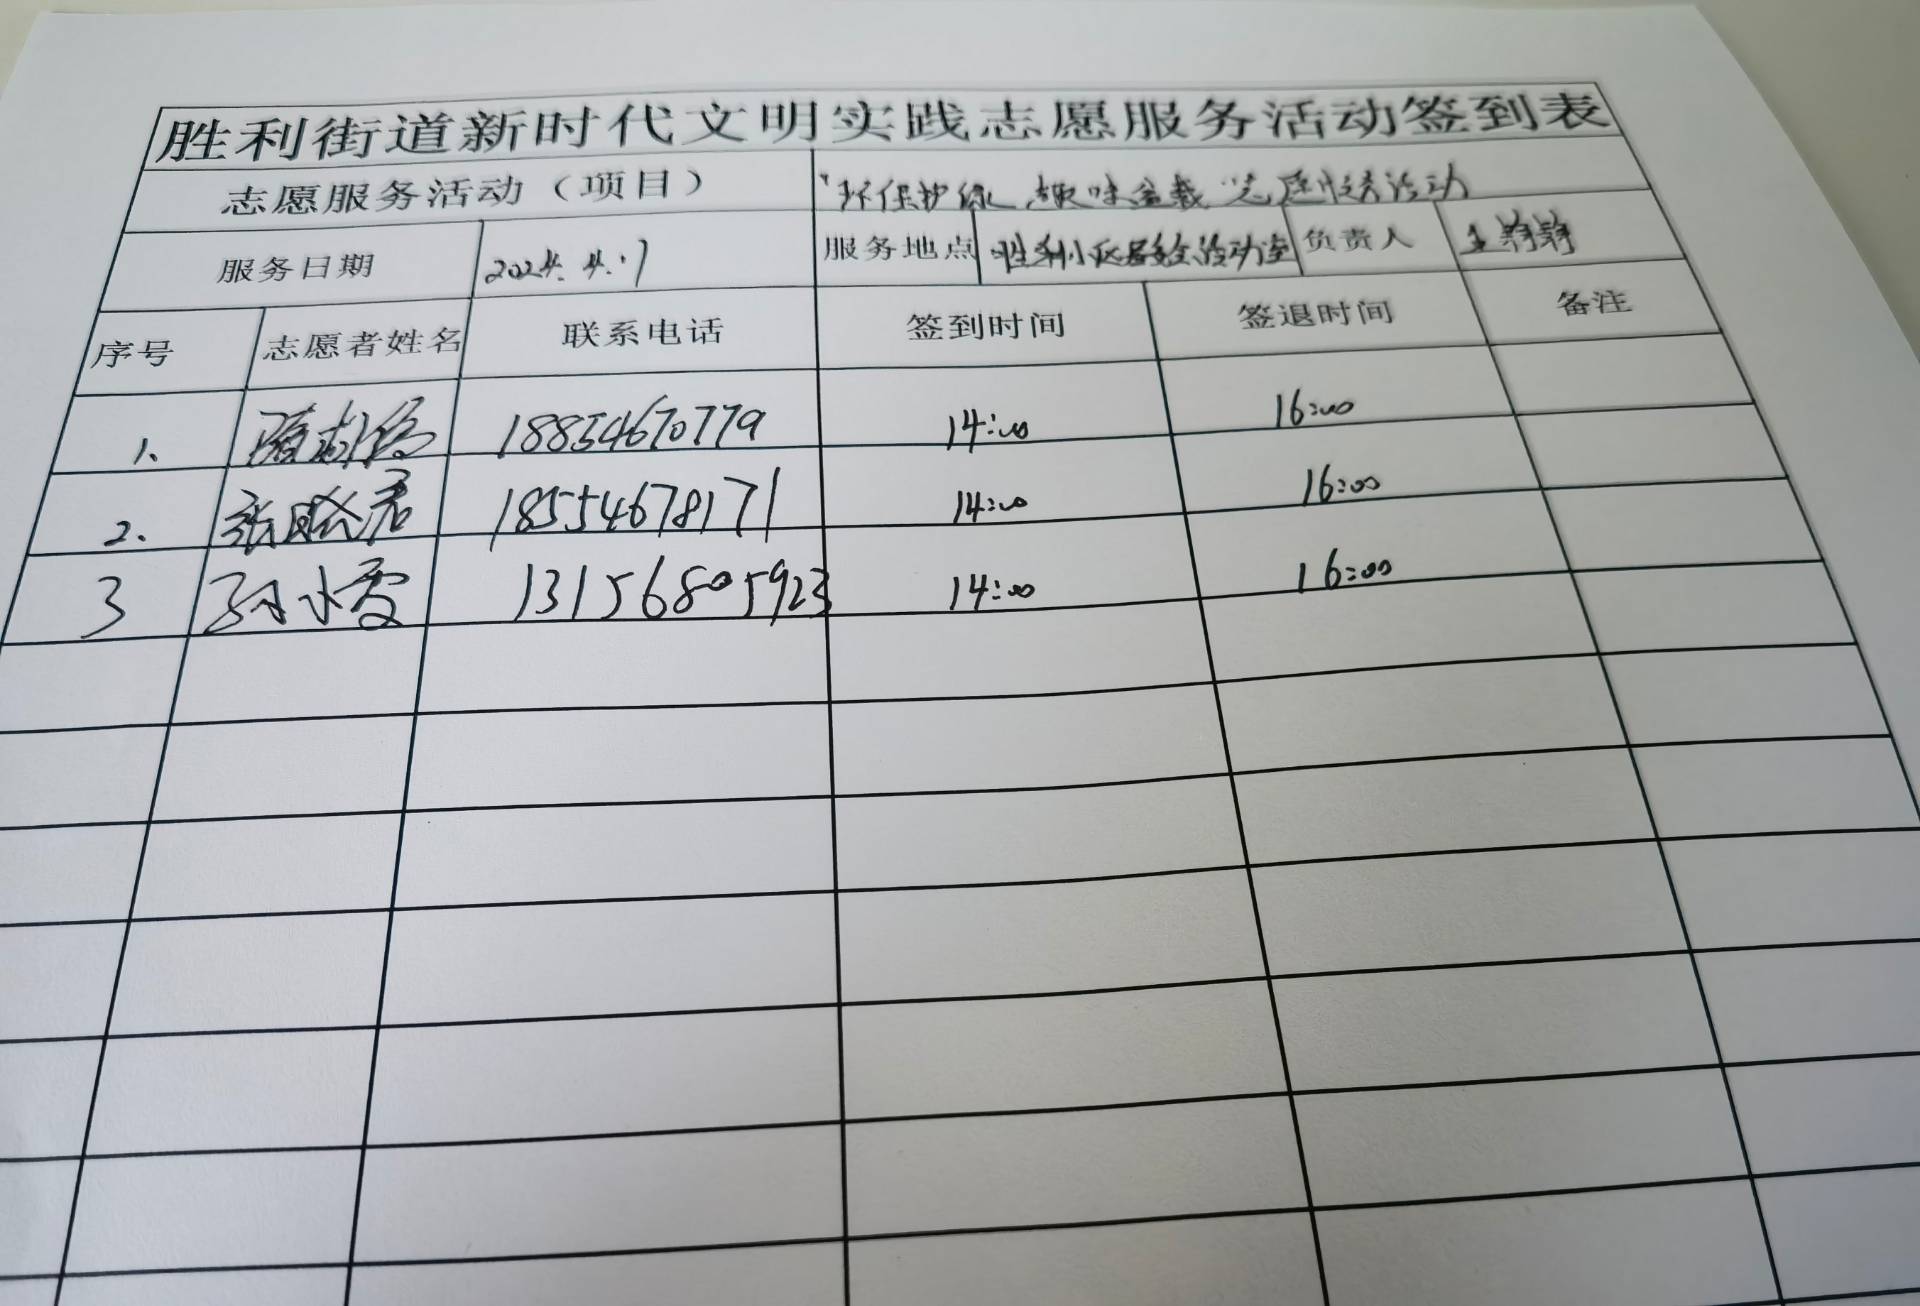 胜利街道新时代文明实践志愿服务活动签到表
志愿服务活动（项目） “环保护绿、趣味盆栽”志愿服务活动
服务日期 2024.4.17 服务地点 胜利小区居委会活动室 负责人 王翔翔
序号 志愿者姓名 联系电话 签到时间 签退时间 备注
1、 18854670779 14:00 16:00
2、 张晓君 18554678171 14:00 16:00
3 孙小雯 13156805923 14:00 16:00